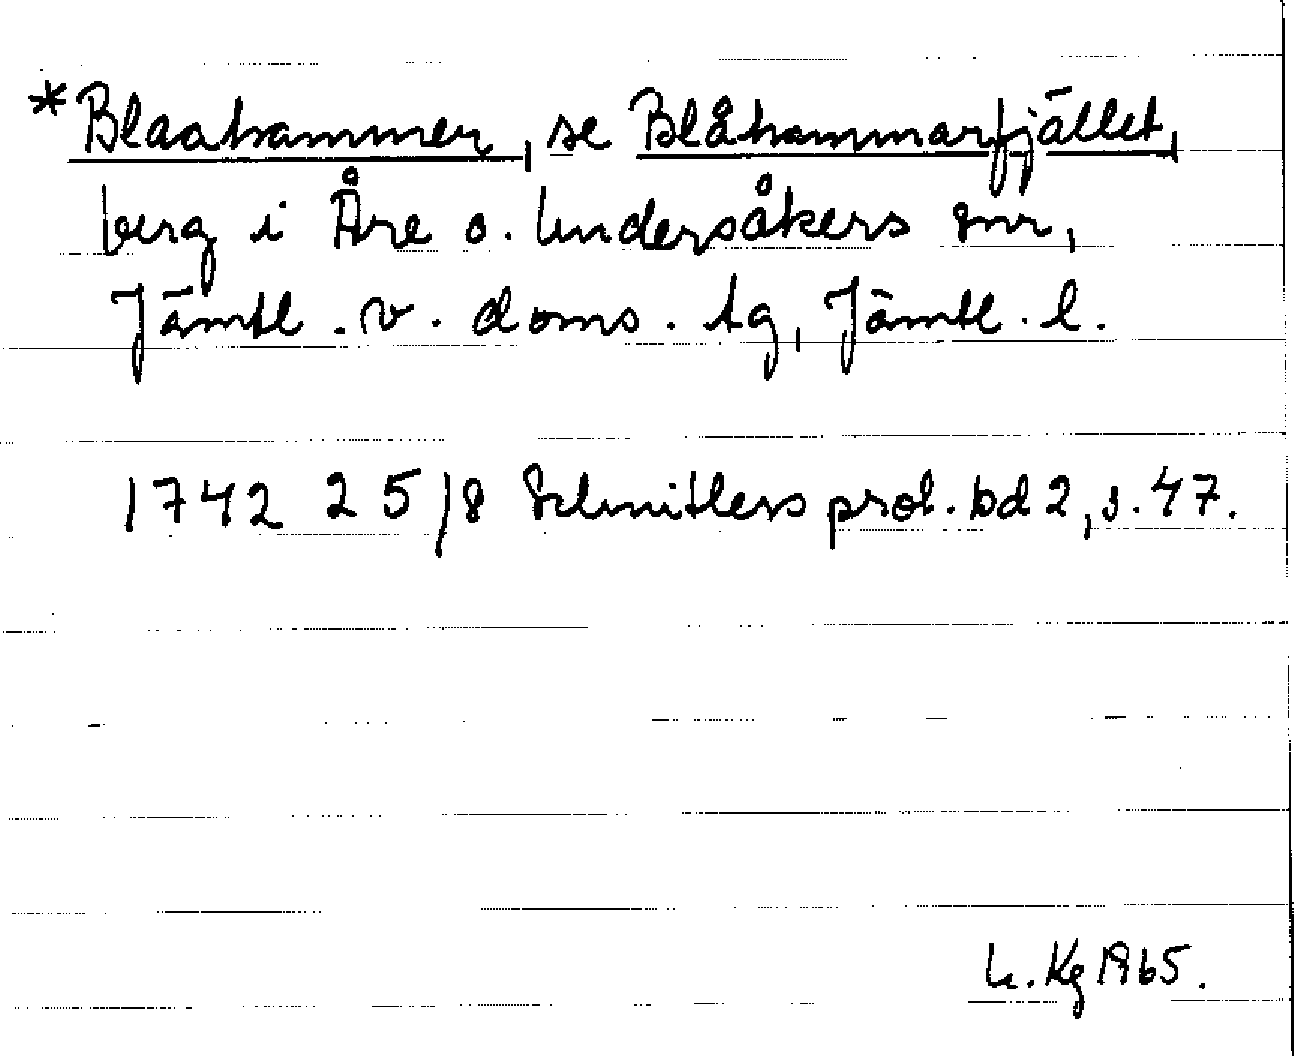 *Blaahammer, se Blåhammarfjället,
berg i Åre o. Undersåkers snr,
Jämtl. v. doms. tg, Jämtl. l.
1742 25/8 Schnitlers prot. bd 2, s. 47.
L. Kg 1965.